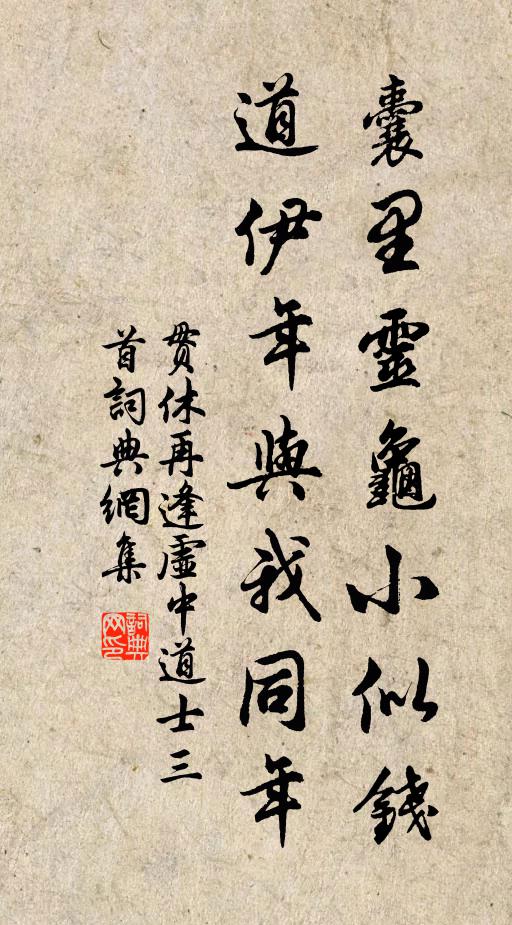 囊里靈龜小似錢
道伊年與我同年
貫休再逢虛中道士三
首詞典網集
詞典网印